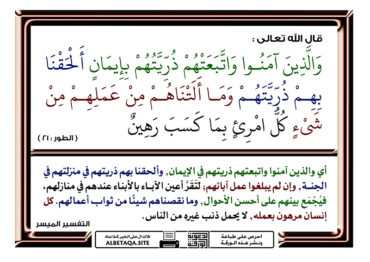 قال الله تعالى :
وَالَّذِينَ آمَنُوا وَاتَّبَعَتْهُمْ ذُرِّيَّتُهُمْ بِإِيمَانٍ أَلْحَقْنَا
بِهِمْ ذُرِّيَّتَهُمْ وَمَا أَلَتْنَاهُمْ مِنْ عَمَلِهِمْ مِنْ
شَيْءٍ كُلُّ امْرِئٍ بِمَا كَسَبَ رَهِينٌ
( الطور : ٢١ )
أي والذين آمنوا واتبعتهم ذريتهم في الإيمان، وألحقنا بهم ذريتهم في منزلتهم في
الجنة، وإن لم يبلغوا عمل آبائهم؛ لتَقَرَّ أعين الآباء بالأبناء عندهم في منازلهم،
فيُجْمَع بينهم على أحسن الأحوال، وما نقصناهم شيئًا من ثواب أعمالهم. كل
إنسان مرهون بعمله، لا يحمل ذنب غيره من الناس.
التفسير الميسر
احرص على طباعة
ونشر هذه الورقة
فالدال على الخير كفاعله
ALBETAQA.SITE